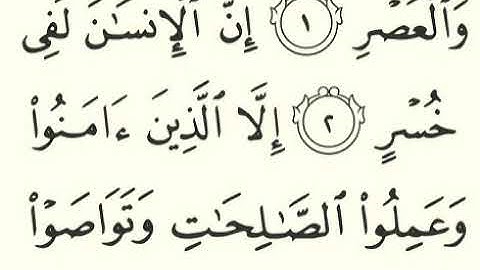 وَٱلْعَصْرِ ١ إِنَّ ٱلْإِنسَٰنَ لَفِى
خُسْرٍ ٢ إِلَّا ٱلَّذِينَ ءَامَنُوا۟
وَعَمِلُوا۟ ٱلصَّٰلِحَٰتِ وَتَوَاصَوْا۟